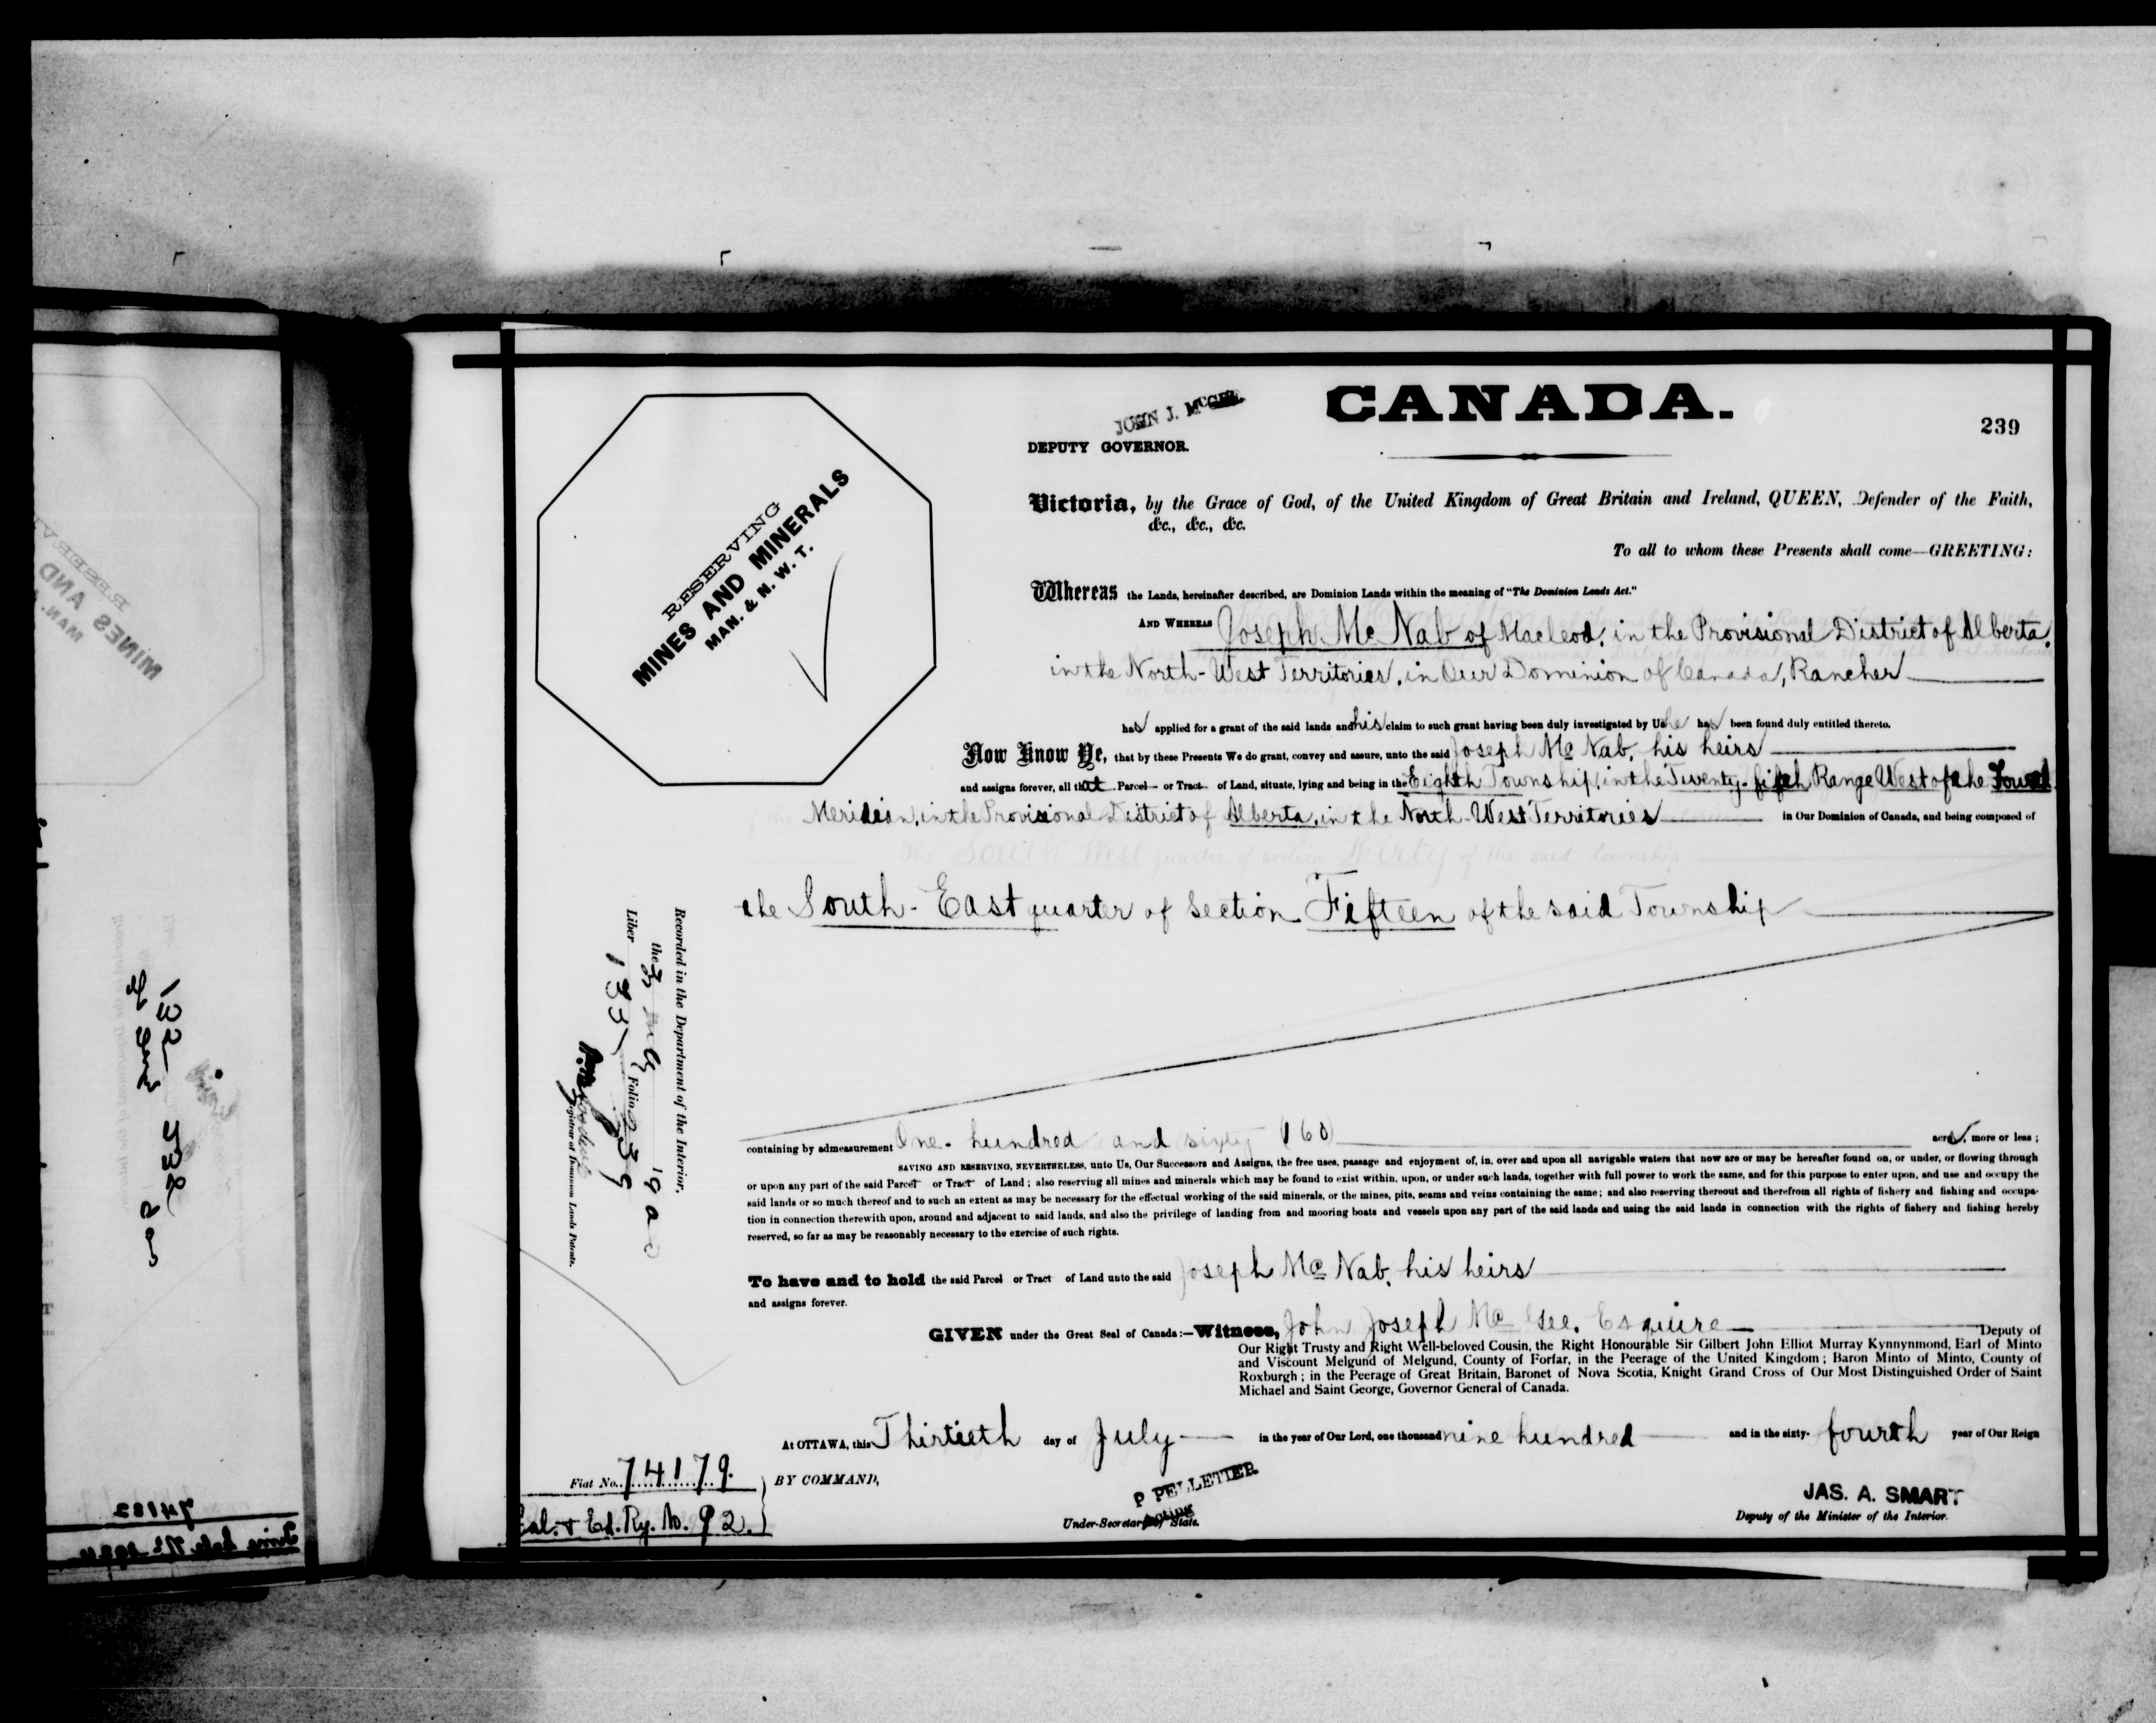 CANADA.
239
JOHN J. McGEE
DEPUTY GOVERNOR.
RESERVING
MINES AND MINERALS
MAN. & N. W. T.
Victoria, by the Grace of God, of the United Kingdom of Great Britain and Ireland, QUEEN, Defender of the Faith,
&c., &c., &c.
To all to whom these Presents shall come—GREETING:
Whereas the Lands, hereinafter described, are Dominion Lands within the meaning of "The Dominion Lands Act."
AND WHEREAS Joseph McNab of Macleod, in the Provisional District of Alberta,
in the North-West Territories, in Our Dominion of Canada, Rancher
has applied for a grant of the said lands and his claim to such grant having been duly investigated by Us he has been found duly entitled thereto.
Now Know Ye, that by these Presents We do grant, convey and assure, unto the said Joseph McNab, his heirs
and assigns forever, all that Parcel or Tract of Land, situate, lying and being in the Eighth Township, in the Twenty-fifth Range West of the Fourth
Meridian, in the Provisional District of Alberta, in the North-West Territories in Our Dominion of Canada, and being composed of
the South-East quarter of Section Fifteen of the said Township
containing by admeasurement One hundred and sixty 160 acres, more or less;
SAVING AND RESERVING, NEVERTHELESS, unto Us, Our Successors and Assigns, the free uses, passage and enjoyment of, in, over and upon all navigable waters that now are or may be hereafter found on, or under, or flowing through
or upon any part of the said Parcel or Tract of Land; also reserving all mines and minerals which may be found to exist within, upon, or under such lands, together with full power to work the same, and for this purpose to enter upon, and use and occupy the
said lands or so much thereof and to such an extent as may be necessary for the effectual working of the said minerals, or the mines, pits, seams and veins containing the same; and also reserving thereout and therefrom all rights of fishery and fishing and occupa-
tion in connection therewith upon, around and adjacent to said lands, and also the privilege of landing from and mooring boats and vessels upon any part of the said lands and using the said lands in connection with the rights of fishery and fishing hereby
reserved, so far as may be reasonably necessary to the exercise of such rights.
To have and to hold the said Parcel or Tract of Land unto the said Joseph McNab, his heirs
and assigns forever.
GIVEN under the Great Seal of Canada:—Witness, John Joseph McGee, Esquire Deputy of
Our Right Trusty and Right Well-beloved Cousin, the Right Honourable Sir Gilbert John Elliot Murray Kynnynmond, Earl of Minto
and Viscount Melgund of Melgund, County of Forfar, in the Peerage of the United Kingdom; Baron Minto of Minto, County of
Roxburgh; in the Peerage of Great Britain, Baronet of Nova Scotia, Knight Grand Cross of Our Most Distinguished Order of Saint
Michael and Saint George, Governor General of Canada.
At OTTAWA, this Thirtieth day of July in the year of Our Lord, one thousand nine hundred and in the sixty-fourth year of Our Reign
BY COMMAND,
P PELLETIER
Acting
Under-Secretary of State.
JAS. A. SMART
Deputy of the Minister of the Interior.
Fiat No. 74179.
Cal. & Ed. Ry. No. 92.
Recorded in the Department of the Interior,
the 3 Aug 1900
Liber 133 Folio 239
Registrar of Dominion Lands Patents.